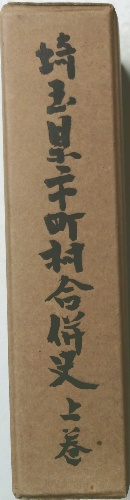 埼玉県市町村合併史上巻